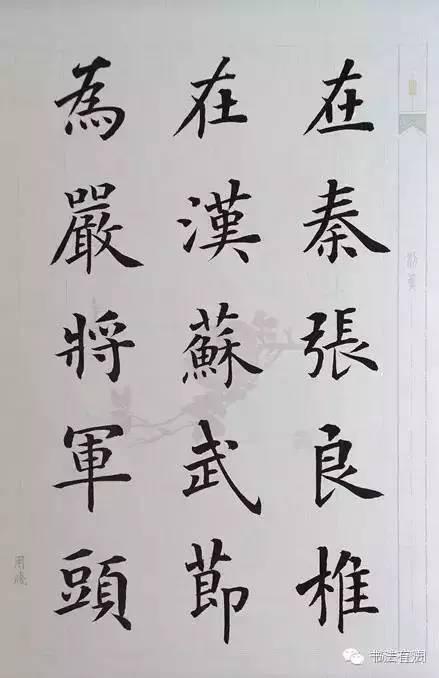 在秦張良椎
在漢蘇武節
為嚴將軍頭
书法直润